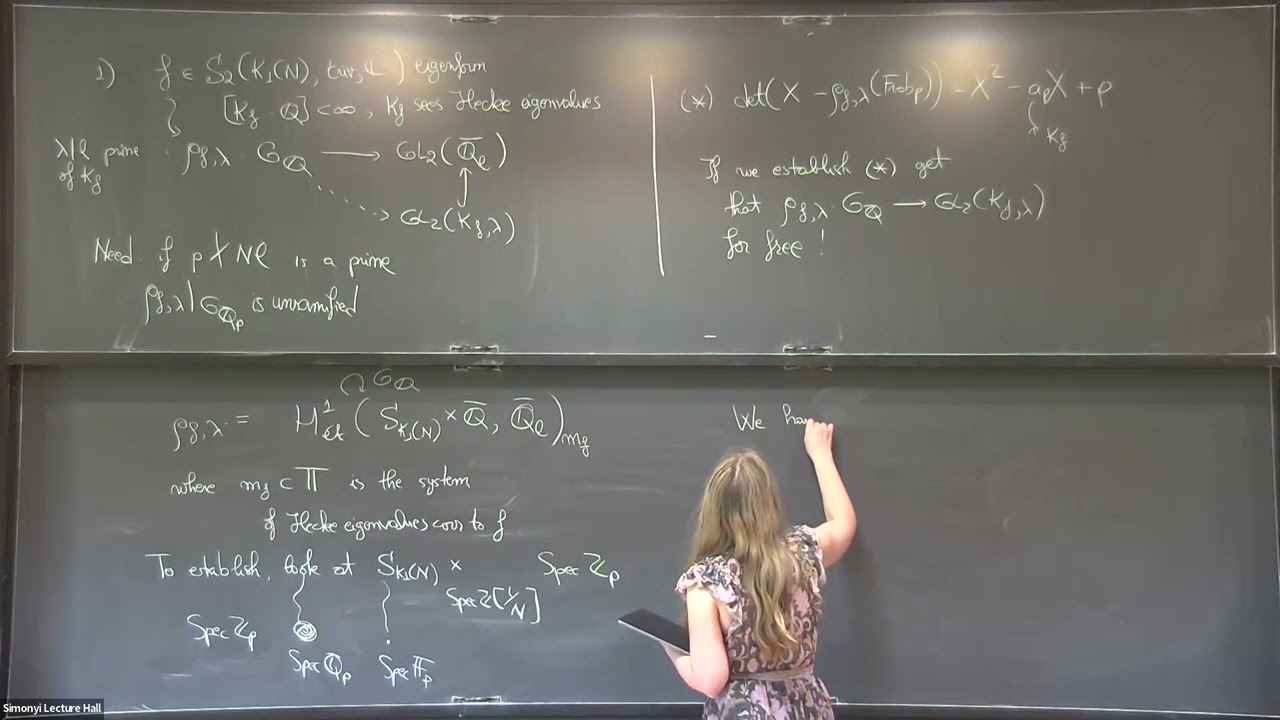 1) f ∈ S₂(K₁(N), triv, ℂ) eigenform
[K_f : ℚ] < ∞, K_f sees Hecke eigenvalues
λ|ℓ prime of K_f
ρ_{f,λ} : G_ℚ → GL₂(ℚ̄_ℓ)
GL₂(K_{f,λ})
Need: if p ∤ Nℓ is a prime
ρ_{f,λ}|G_{ℚ_p} is unramified
(*) det(X − ρ_{f,λ}(Frob_p)) = X² − a_pX + p
K_f
If we establish (*) get
that ρ_{f,λ} : G_ℚ → GL₂(K_{f,λ})
for free !
G_ℚ
ρ_{f,λ} := H¹_ét(S_{K₁(N)} × ℚ̄, ℚ̄_ℓ)_{m_f}
where m_f ⊂ 𝕋 is the system
of Hecke eigenvalues corr to f
To establish, look at S_{K₁(N)} × Spec ℤ_p
Spec ℤ[1/N]
Spec ℤ_p
Spec ℚ_p Spec 𝔽_p
We hav
Simonyi Lecture Hall